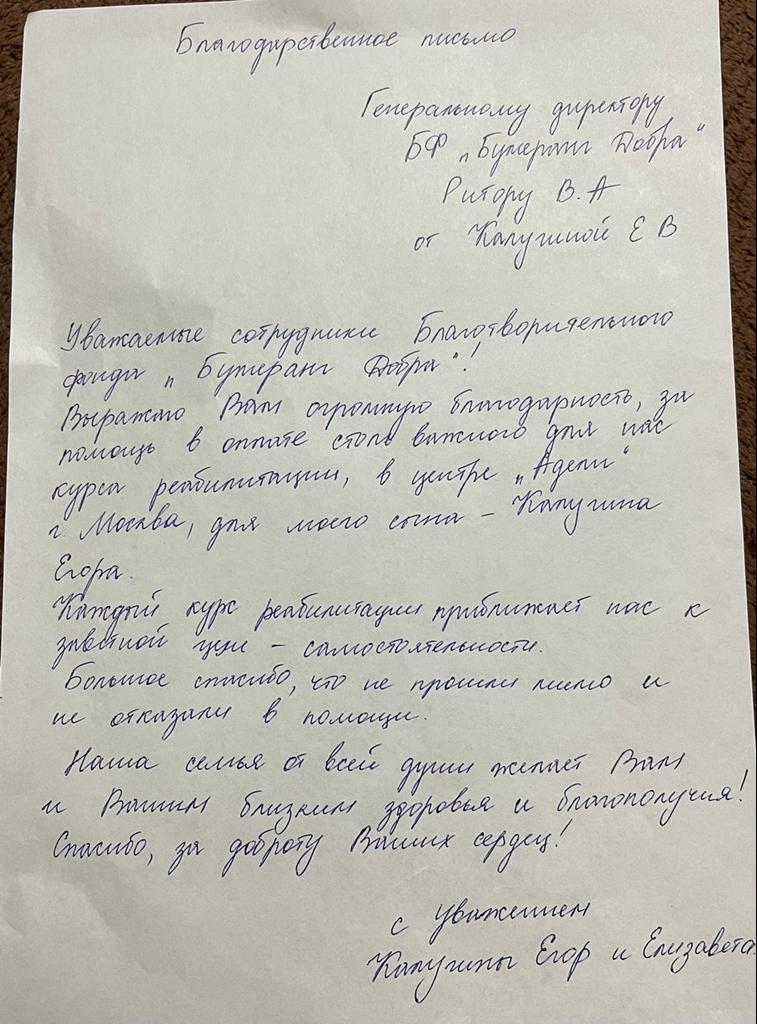 Благодарственное письмо
Генеральному директору
БФ „Бумеранг Добра"
Ритору В.А
от Калугиной Е В
Уважаемые сотрудники Благотворительного
фонда „Бумеранг Добра"!
Выражаю Вам огромную благодарность, за
помощь в оплате столь важного для нас
курса реабилитации, в центре „Адели"
г. Москва, для моего сына – Калугина
Егора.
Каждый курс реабилитации приближает нас к
заветной цели – самостоятельности.
Большое спасибо, что не прошли мимо и
не отказали в помощи.
Наша семья от всей души желает Вам
и Вашим близким здоровья и благополучия!
Спасибо, за доброту Ваших сердец!
с Уважением
Калугины Егор и Елизавета.